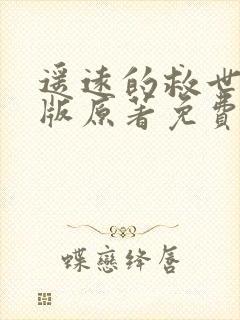 遥远的救世
版原著免费
蝶恋绛唇